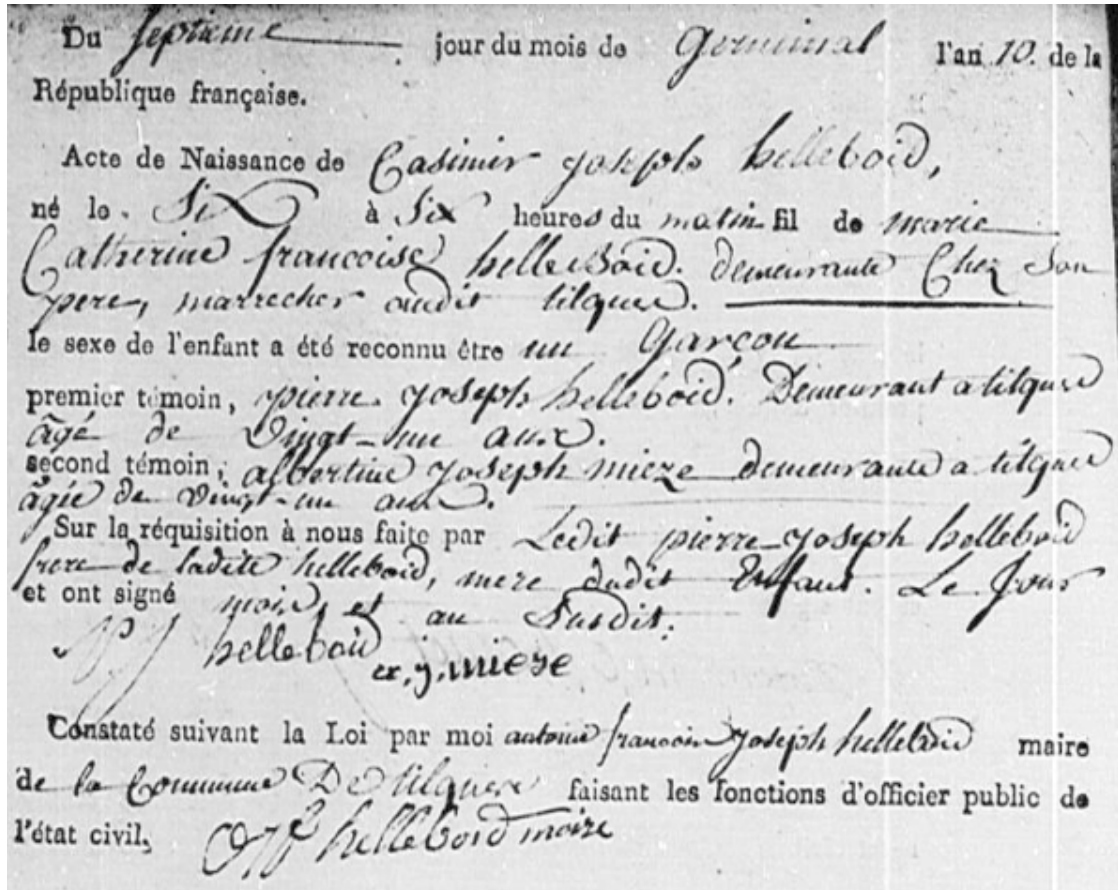 Du septieme jour du mois de Germinal l'an 10. de la
République française.
Acte de Naissance de Casimir joseph helleboid,
né le Six à Six heures du matin fil de marie
Catherine francoise helleboid. demeurante Chez Son
pere, marrecher audit tilques.
le sexe de l'enfant a été reconnu être un Garçon
premier témoin, pierre joseph helleboid. Demeurant a tilques
âgé de vingt-un ans.
second témoin, albertine joseph mieze demeurante a tilques
âgée de vingt-un ans.
Sur la réquisition à nous faite par Ledit pierre joseph helleboid
frere de ladite helleboid, mere dudit Enfant. Le Jour
et ont signé mois, et an Susdit.
PJ helleboid
a. j. mieze
Constaté suivant la Loi par moi antoine francois joseph helleboid maire
de la Commune De tilques faisant les fonctions d'officier public de
l'état civil, helleboid maire